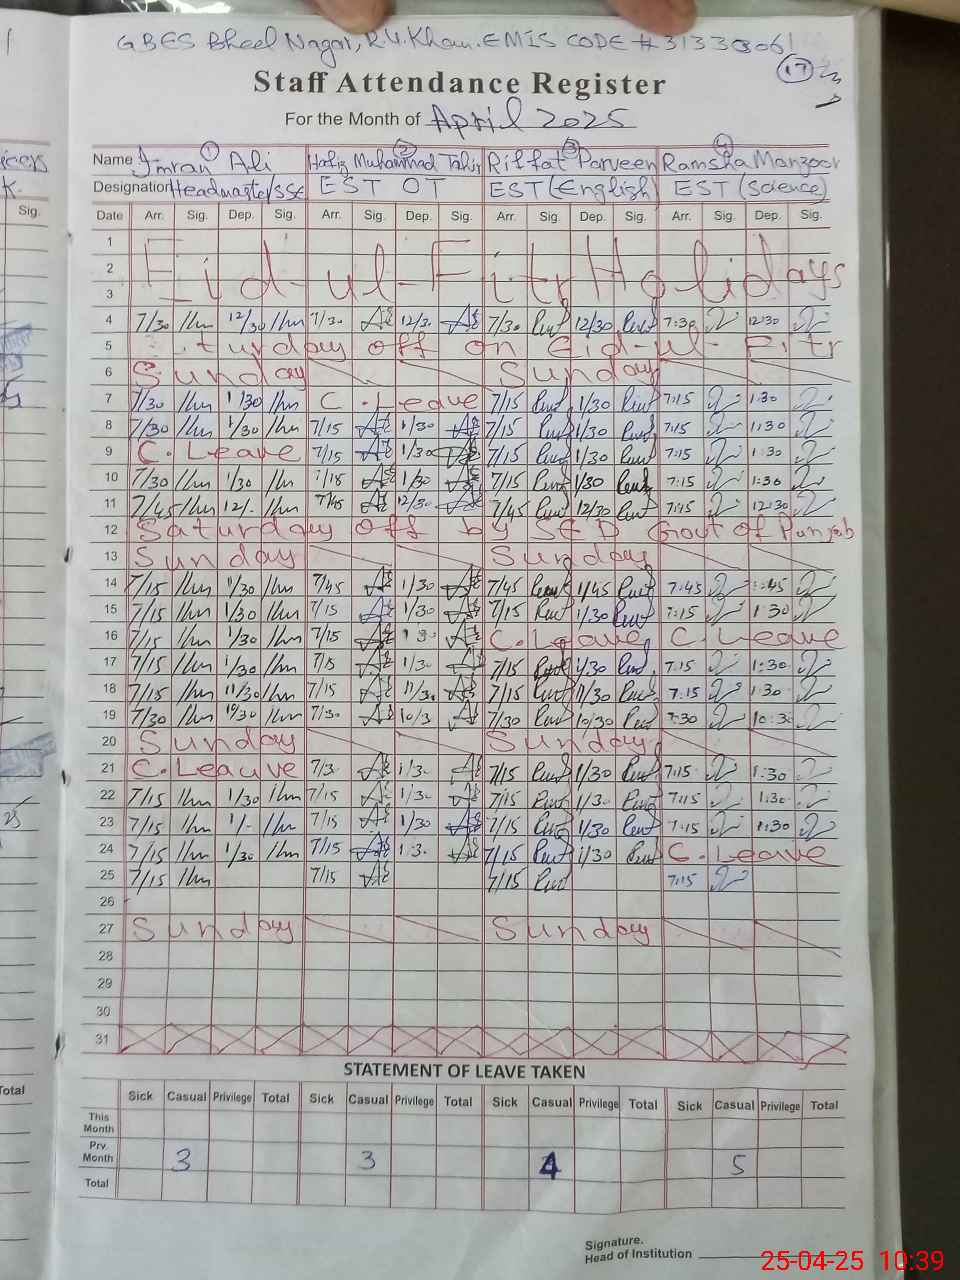 GBES Bheel Nagar, R.Y.Khan. EMIS CODE # 31330061
17
Staff Attendance Register
For the Month of April 2025
1 2 3 4
Name Imran Ali Hafiz Muhammad Tahir Riffat Parveen Ramsha Manzoor
Designation Headmaster/SSE EST OT EST (English) EST (Science)
Sig. Date Arr. Sig. Dep. Sig. Arr. Sig. Dep. Sig. Arr. Sig. Dep. Sig. Arr. Sig. Dep. Sig.
1
2 Eid-ul-Fitr Holidays
3
4 7/30 12/30 7/30 12/30 7/30 12/30 7:30 12:30
5 turday off on Eid-ul-Fitr
6 Sunday Sunday
7 7/30 1/30 C. Leave 7/15 1/30 7:15 1:30
8 7/30 1/30 7/15 1/30 7/15 1/30 7:15 1:30
9 C. Leave 7/15 1/30 7/15 1/30 7:15 1:30
10 7/30 1/30 7/15 1/30 7/15 1/30 7:15 1:30
11 7/45 12/- 7/45 12/30 7/45 12/30 7:45 12:30
12 Saturday off by SED Govt of Punjab
13 Sunday Sunday
14 7/15 1/30 7/45 1/30 7/45 1/45 7:45 1:45
15 7/15 1/30 7/15 1/30 7/15 1/30 7:15 1:30
16 7/15 1/30 7/15 1 30 C. Leave C. Leave
17 7/15 1/30 7/15 1/30 7/15 1/30 7:15 1:30
18 7/15 11/30 7/15 11/30 7/15 11/30 7:15 1:30
19 7/30 10/30 7/30 10/3 7/30 10/30 7:30 10:30
20 Sunday Sunday
21 C. Leauve 7/3 1/3 7/15 1/30 7:15 1:30
22 7/15 1/30 7/15 1/30 7/15 1/30 7:15 1:30
23 7/15 1/- 7/15 1/30 7/15 1/30 7:15 1:30
24 7/15 1/30 7/15 1:3 7/15 1/30 C. Leave
25 7/15 7/15 7/15 7:15
26
27 Sunday Sunday
28
29
30
31
STATEMENT OF LEAVE TAKEN
Total Sick Casual Privilege Total Sick Casual Privilege Total Sick Casual Privilege Total Sick Casual Privilege Total
This Month
Prv. Month 3 3 4 5
Total
Signature.
Head of Institution
25-04-25 10:39